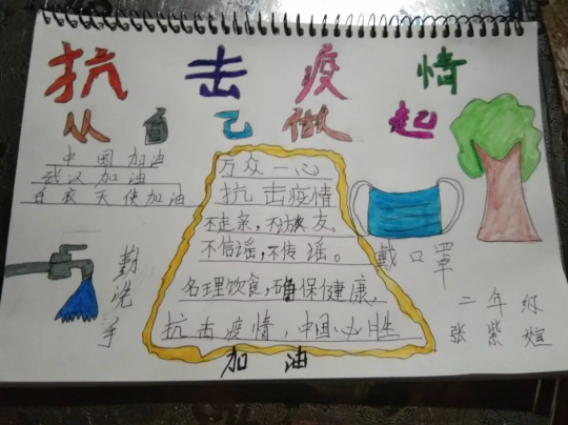 抗击疫情
从自己做起
中国加油
武汉加油
白衣天使加油
万众一心
抗击疫情
不走亲,不访友。
不信谣,不传谣。
名理饮食,确保健康。
抗击疫情,中国必胜
加油
勤洗手
戴口罩
二年级
张紫煊